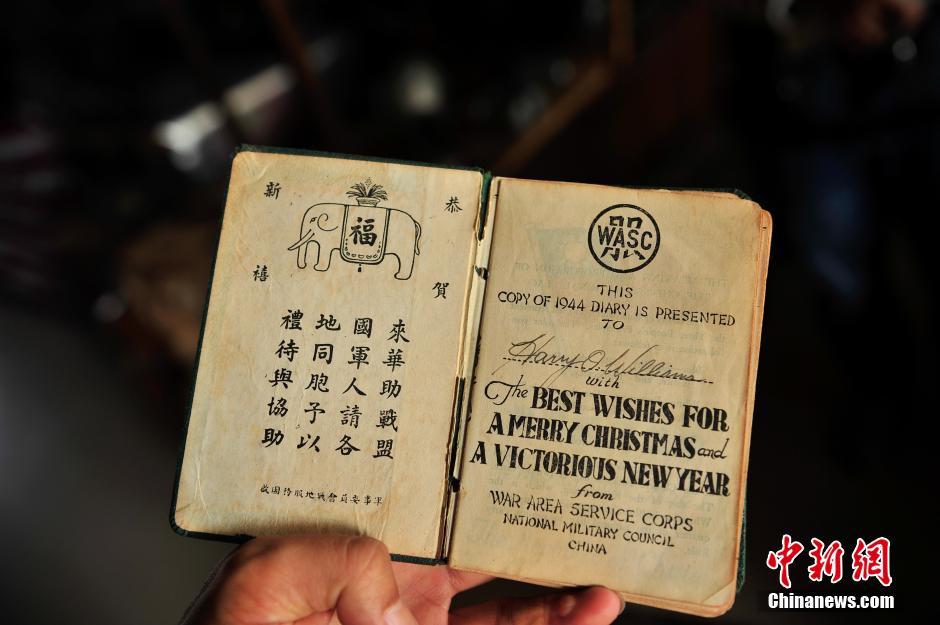 恭賀
新禧
福
來華助戰盟
國軍人請各
地同胞予以
禮待與協助
軍事委員會戰地服務团啟
WASC
THIS
COPY OF 1944 DIARY IS PRESENTED
TO
Harry O. Williams
with
The BEST WISHES FOR
A MERRY CHRISTMAS and
A VICTORIOUS NEW YEAR
from
WAR AREA SERVICE CORPS
NATIONAL MILITARY COUNCIL
CHINA
中新網
Chinanews.com